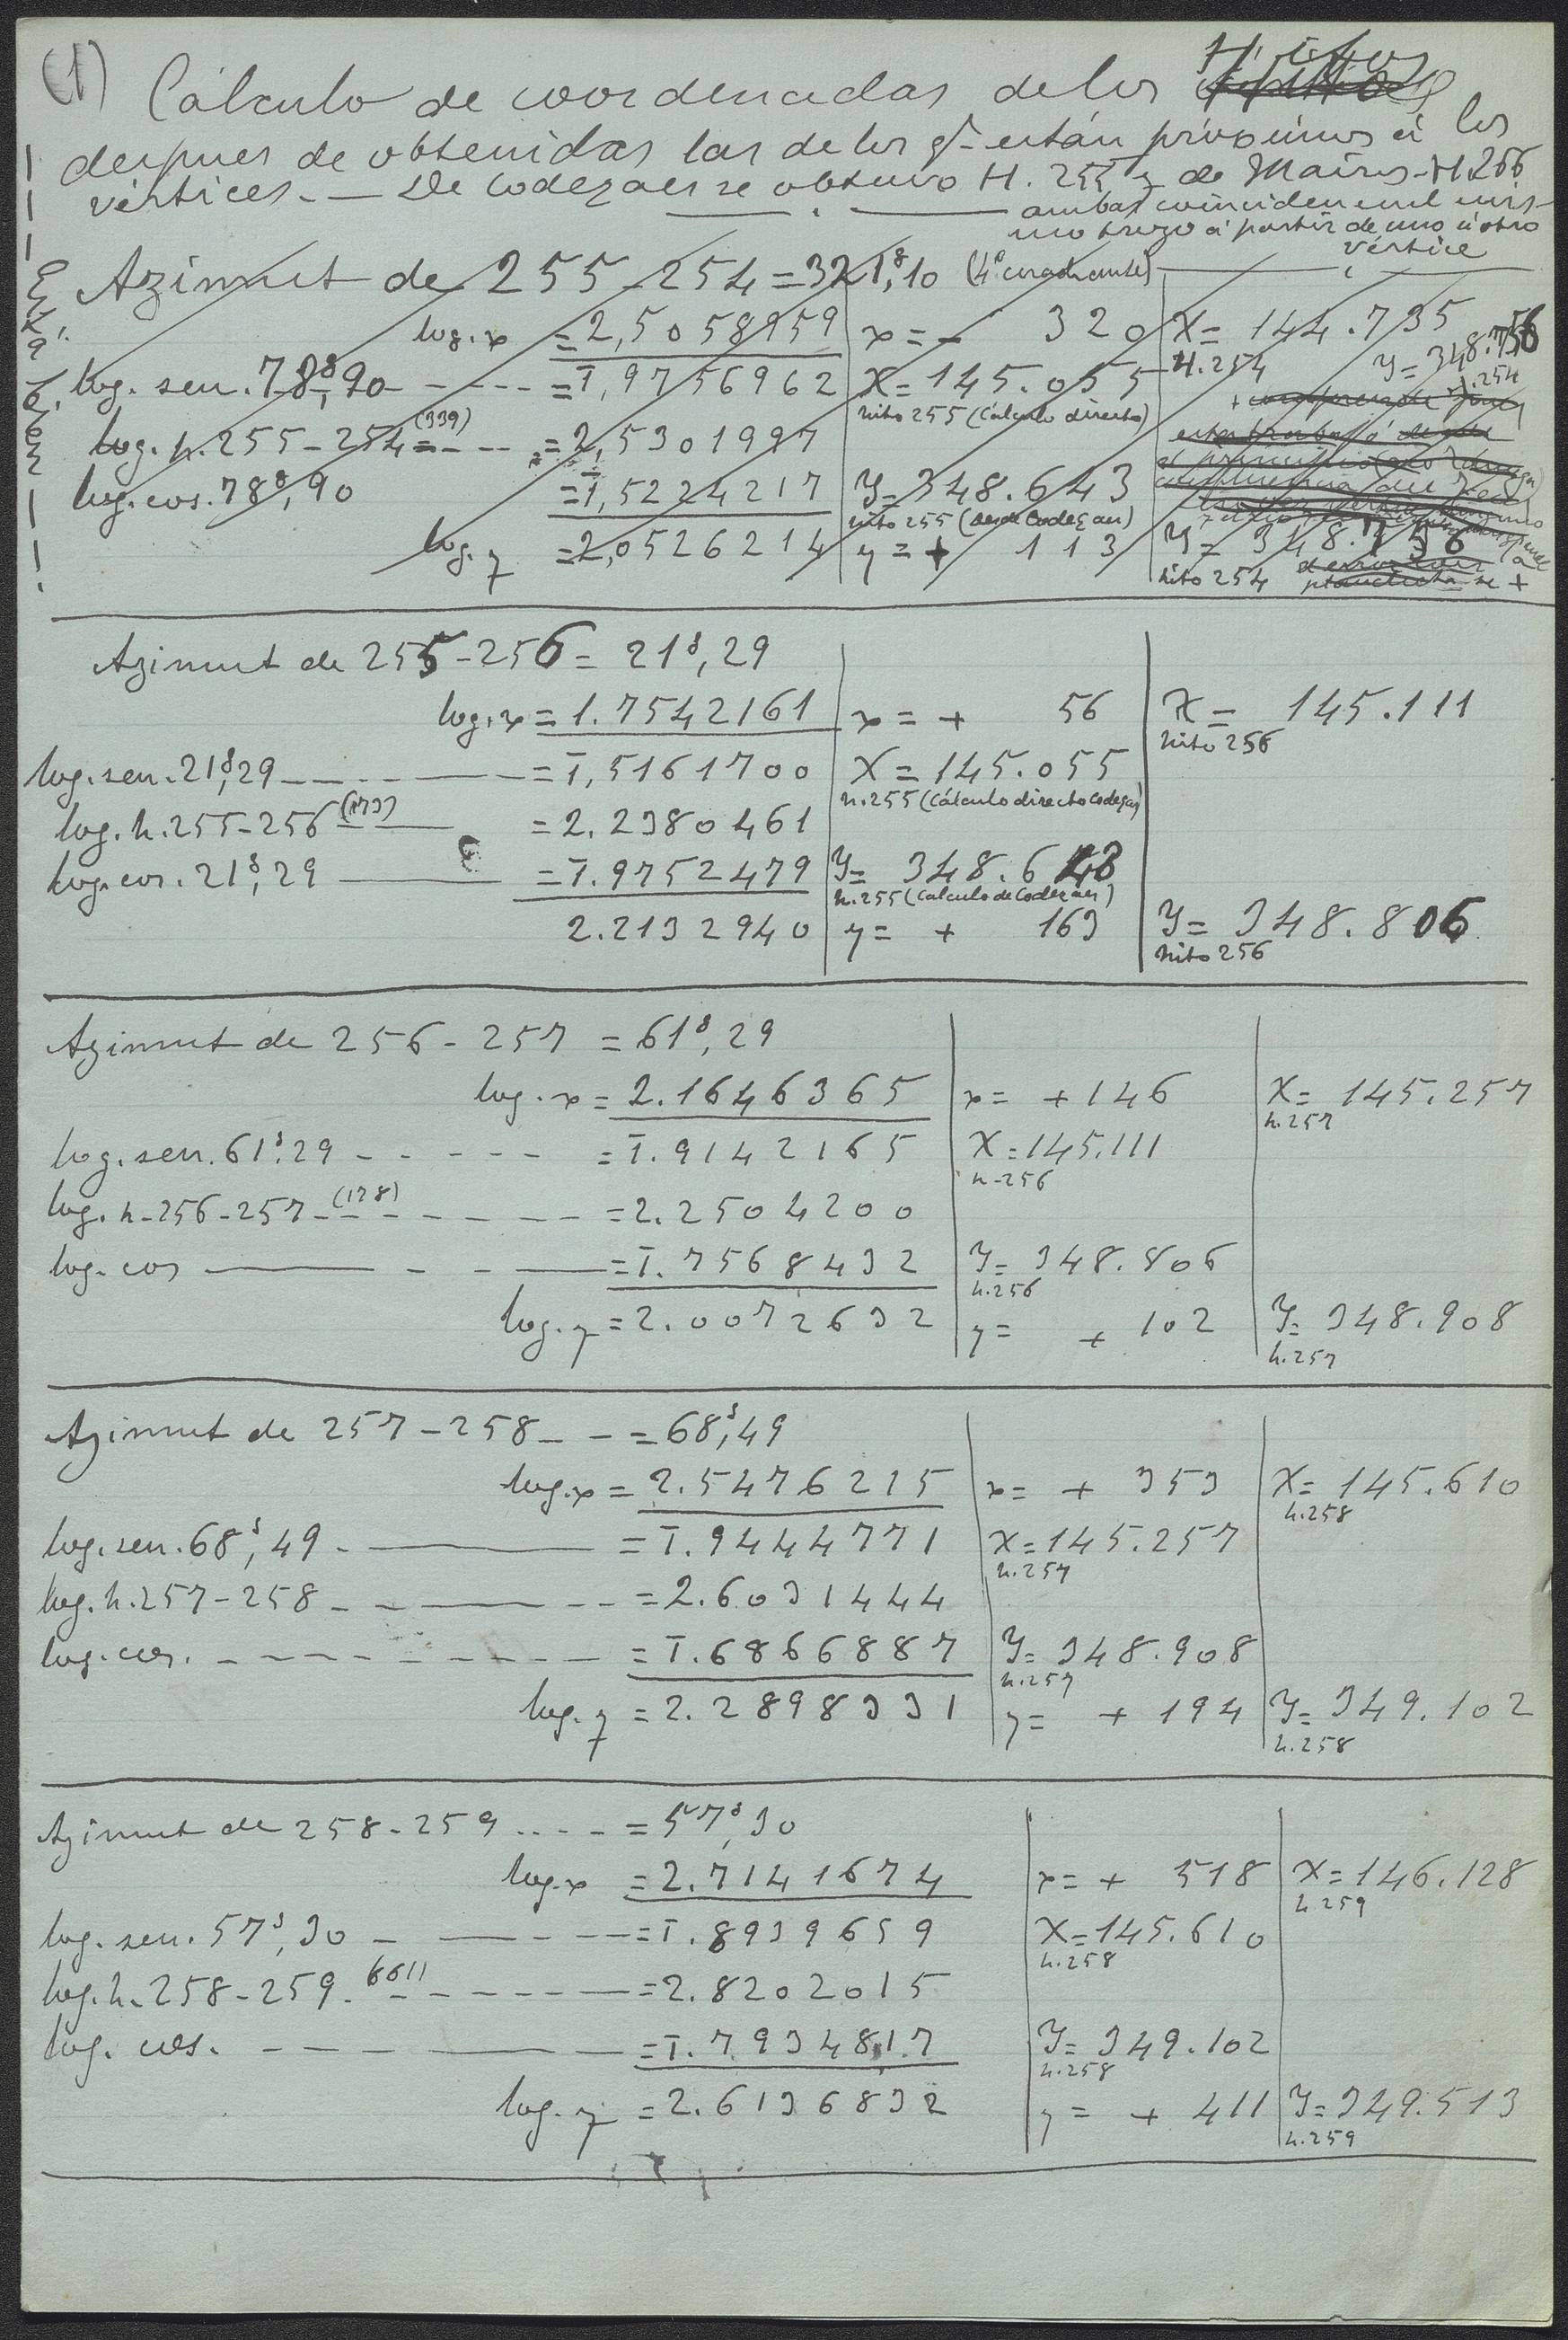 (1) Cálculo de coordenadas de los Hitos
despues de obtenidas las de los q̄ están próximos á los
vértices. — De Codezaes se obtuvo H. 255 y de Mairos - H. 256
ambas coinciden en el mis-
mo trozo á partir de uno ú otro
vértice
Azimut de 255-254 = 321ᵍ,10 (4º cuadrante)
log. x = 2,5058959 x = - 320 X = 144.735
H. 254
Y = 348.756
H. 254
log. sen. 78ᵍ,90 - - - - = 1̄,9756962 X = 145.055
hito 255 (Cálculo directo)
log. h. 255-254 (339) = - - - = 2,5301997
log. cos. 78ᵍ,90 = 1̄,5224217 Y = 348.643
hito 255 (desde Codezaes)
log. y = 2,0526214 y = + 113 Y = 348.756
hito 254
Azimut de 255-256 = 21ᵍ,29
log. x = 1.7542161 x = + 56 X = 145.111
hito 256
log. sen. 21ᵍ,29 — - — = 1̄,5161700 X = 145.055
h. 255 (Cálculo directo Codezaes)
log. h. 255-256 (173) — = 2.2380461
log. cos. 21ᵍ,29 — = 1̄.9752479 Y = 348.643
h. 255 (Calculo de Codezaes)
2.2132940 y = + 163 Y = 348.806
hito 256
Azimut de 256 - 257 = 61ᵍ,29
log. x = 2.1646365 x = + 146 X = 145.257
h. 257
log. sen. 61ᵍ.29 - - - - - = 1̄.9142165 X = 145.111
h - 256
log. h - 256 - 257 - (178) - - - - = 2.2504200
log. cos — - - — = 1̄.7568432 Y = 348.806
h. 256
log. y = 2.0072632 y = + 102 Y = 348.908
h. 257
Azimut de 257 - 258 - - = 68ᵍ,49
log. x = 2.5476215 x = + 353 X = 145.610
h. 258
log. sen. 68ᵍ,49 - — = 1̄.9444771 X = 145.257
h. 257
log. h. 257 - 258 - - — - - = 2.6031444
log. cos. - - - - - - - - - = 1̄.6866887 Y = 348.908
h. 257
log. y = 2.2898331 y = + 194 Y = 349.102
h. 258
Azimut de 258 - 259 .... - = 57ᵍ,30
log. x = 2.7141674 x = + 518 X = 146.128
h. 259
log. sen. 57ᵍ,30 - — - - = 1̄.8939659 X = 145.610
h. 258
log. h - 258 - 259 - 6611 - - - - - = 2.8202015
log. cos. - - - — = 1̄.7934817 Y = 349.102
h. 258
log. y = 2.6136832 y = + 411 Y = 349.513
h. 259